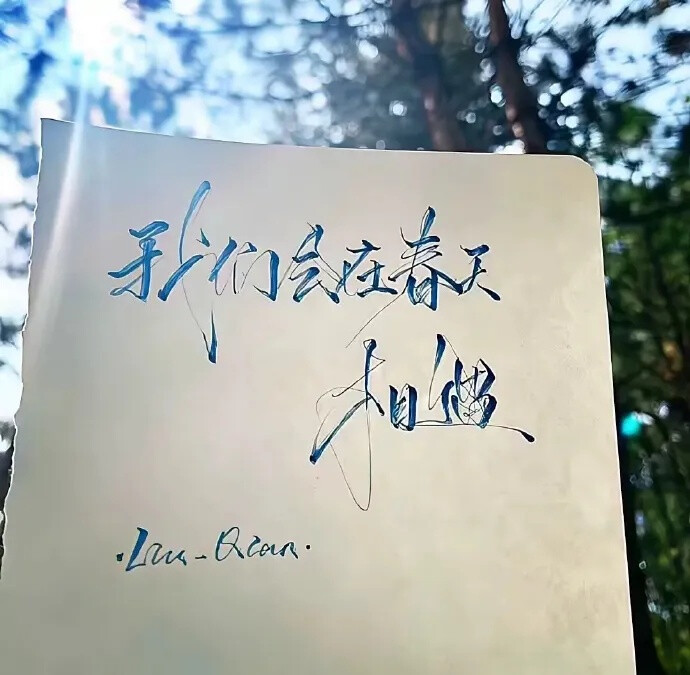 我们会在春天
相遇
·Lin-Qian·